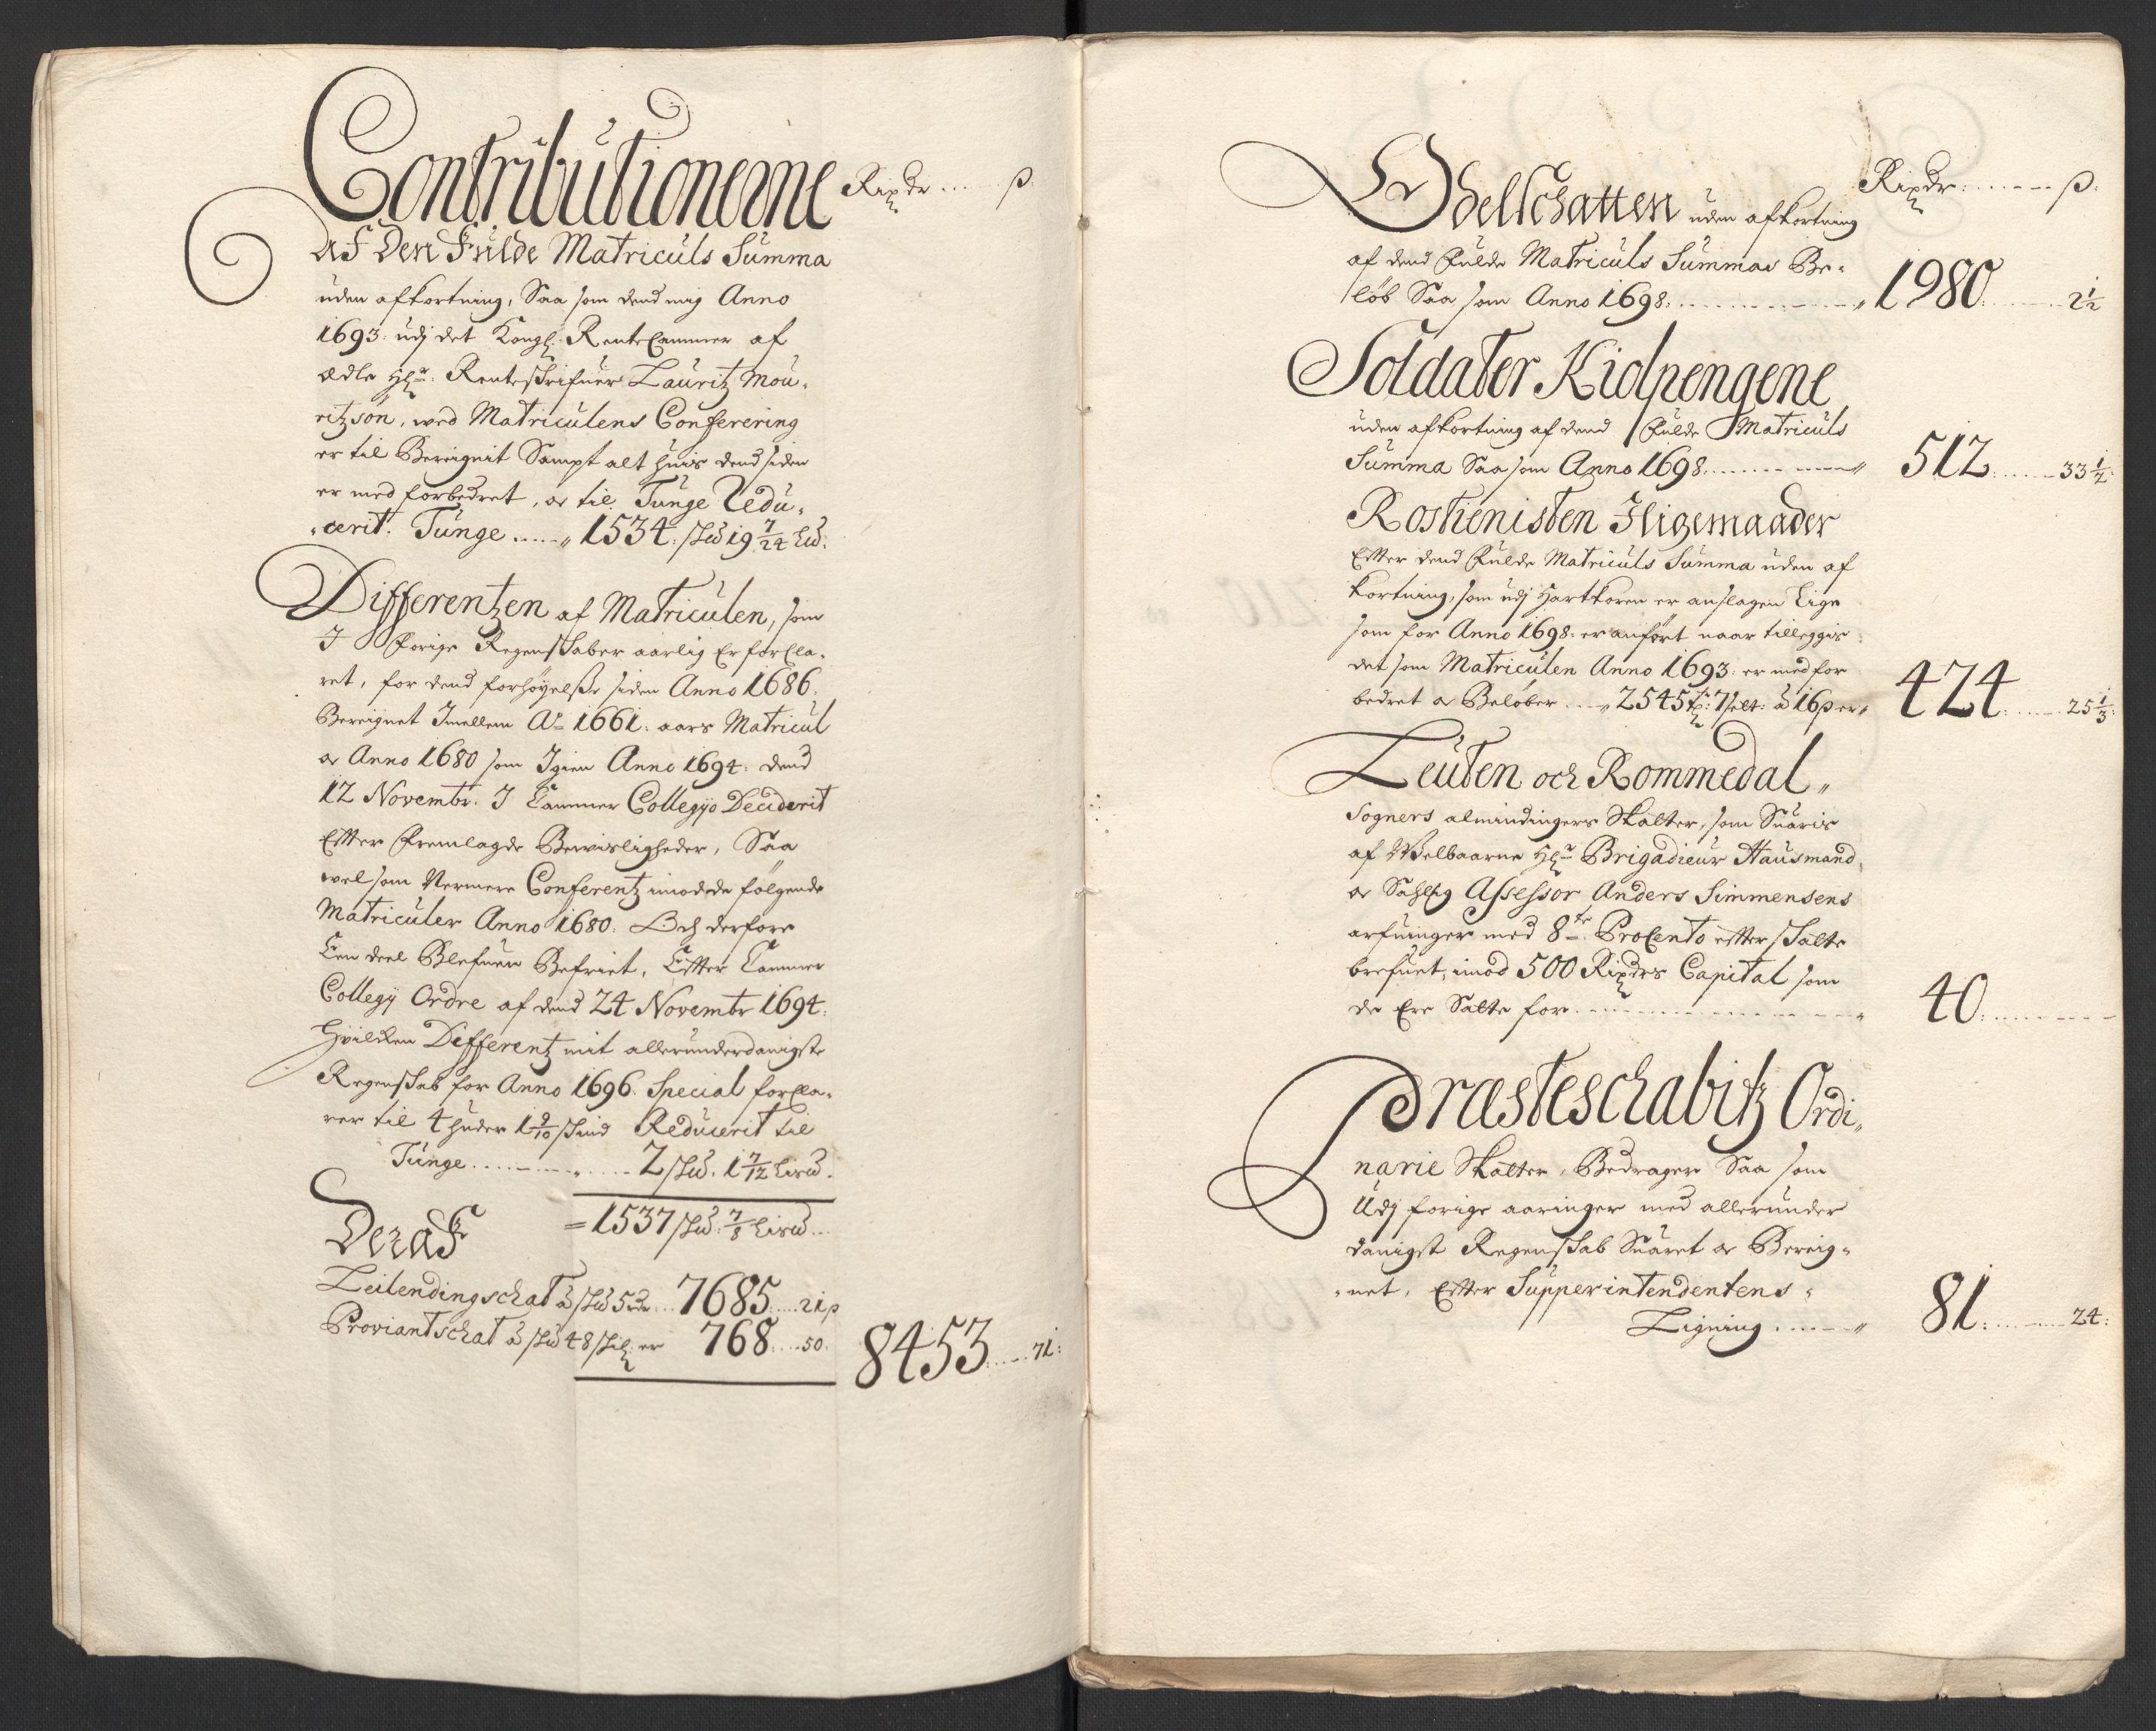 Contributionerne Rixdr ..... ß
Af Den Fulde Matriculs Summa
uden afkortning, Saa som dend mig Anno
1693. udj det Kongl: RenteCammer af
ædle Hr: Renteskrifuer Lauritz Mou-
ritzsøn, wed Matriculens Conferering
er til Bereignit Sampt alt huis dend siden
er med forbedret, er til Tunge Redu-
cerit. Tunge ..... 1534. skd 19 7/24 Lid:
Differentzen af Matriculen, som
I Forige Regenskaber aarlig Er forCla-
ret, for dend forhøyelße siden Anno 1686.
Bereignet Imellem Ao 1661. aars Matricul
oc Anno 1680 som Igien Anno 1694. dend
12 Novembr. I Cammer Collegyo Deciderit
Efter Fremlagde Bewisligheder, Saa
wel som Nermere Conferentz imod de følgende
Matriculer Anno 1680. Och derfore
Een deel Blefuen Befriet, Efter Cammer
Collegy Ordre af dend 24 Novembr 1694.
Hvilcken Differentz mit allerunderdanigste
Regenskab for Anno 1696. Special forCla-
rer til 4 huder 1 9/10 skind Reducerit til
Tunge ........ 2 skd. 1 7/12 Lisd.
= 1537 skd. 7/8 Lisd ..
Deraf
Leilendingschat à skd 5 rdr ... 7685 .... 21 ß
Proviantschat à skd 48 skil: er 768 .... 50. 8453 .... 71:
Rixdr: ...... ß:
Odelschatten uden afkortning
af dend Fulde Matriculs Summas Be-
løb Saa som Anno 1698. ........ 1980 ..... 2 1/2
Soldater Kiolpengene
uden afkortning af dend Fulde Matriculs
Summa Saa som Anno 1698 ........ 512 ..... 33 1/2:
Rostienisten Iligemaader
Efter dend Fulde Matriculs Summa uden af
kortning, som udj Hartkoren er anslagen Lige
som for Anno 1698. er anført naar tillegges
det som Matriculen Anno 1693. er med for
bedret oc Beløber ... 2545 tr: 7 settt: à 16 ß er 424 ..... 25 1/3:
Leuten och Rommedal
Sogners almindinger Skatter, som Suaris
af Welbaarne Hr Brigadieur Hausmand,
oc Sahlig Assessor Anders Simmensens
arfuinger med 8te ProCento efter skatte
brefuet, imod 500 Rixdrs Capital som
de Ere Satte for ........ 40. ......
Præsteschabitz Ordi-
narie Skatter, Bedrager Saa som
Udj forige aaringer med allerunder
danigst Regenskab Suaret oc Bereig-
net, Efter Supperintendentens
Ligning ...... 81. ..... 24: